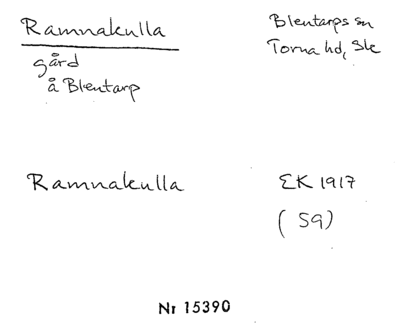 Ramnakulla
gård
å Blentarp
Blentarps sn
Torna hd, Sk
Ramnakulla
EK 1917
(59)
Nr 15390